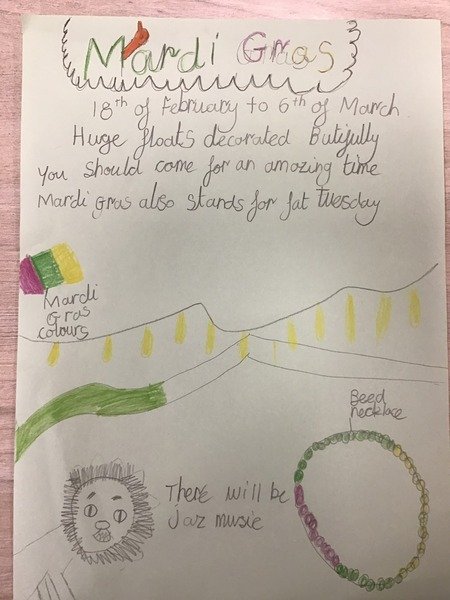 Mardi Gras
18th of February to 6th of March
Huge floats decorated Butifully
You should come for an amazing time
Mardi Gras also stands for fat Tuesday
Mardi
Gras
colours
Beed
necklace
There will be
jaz music